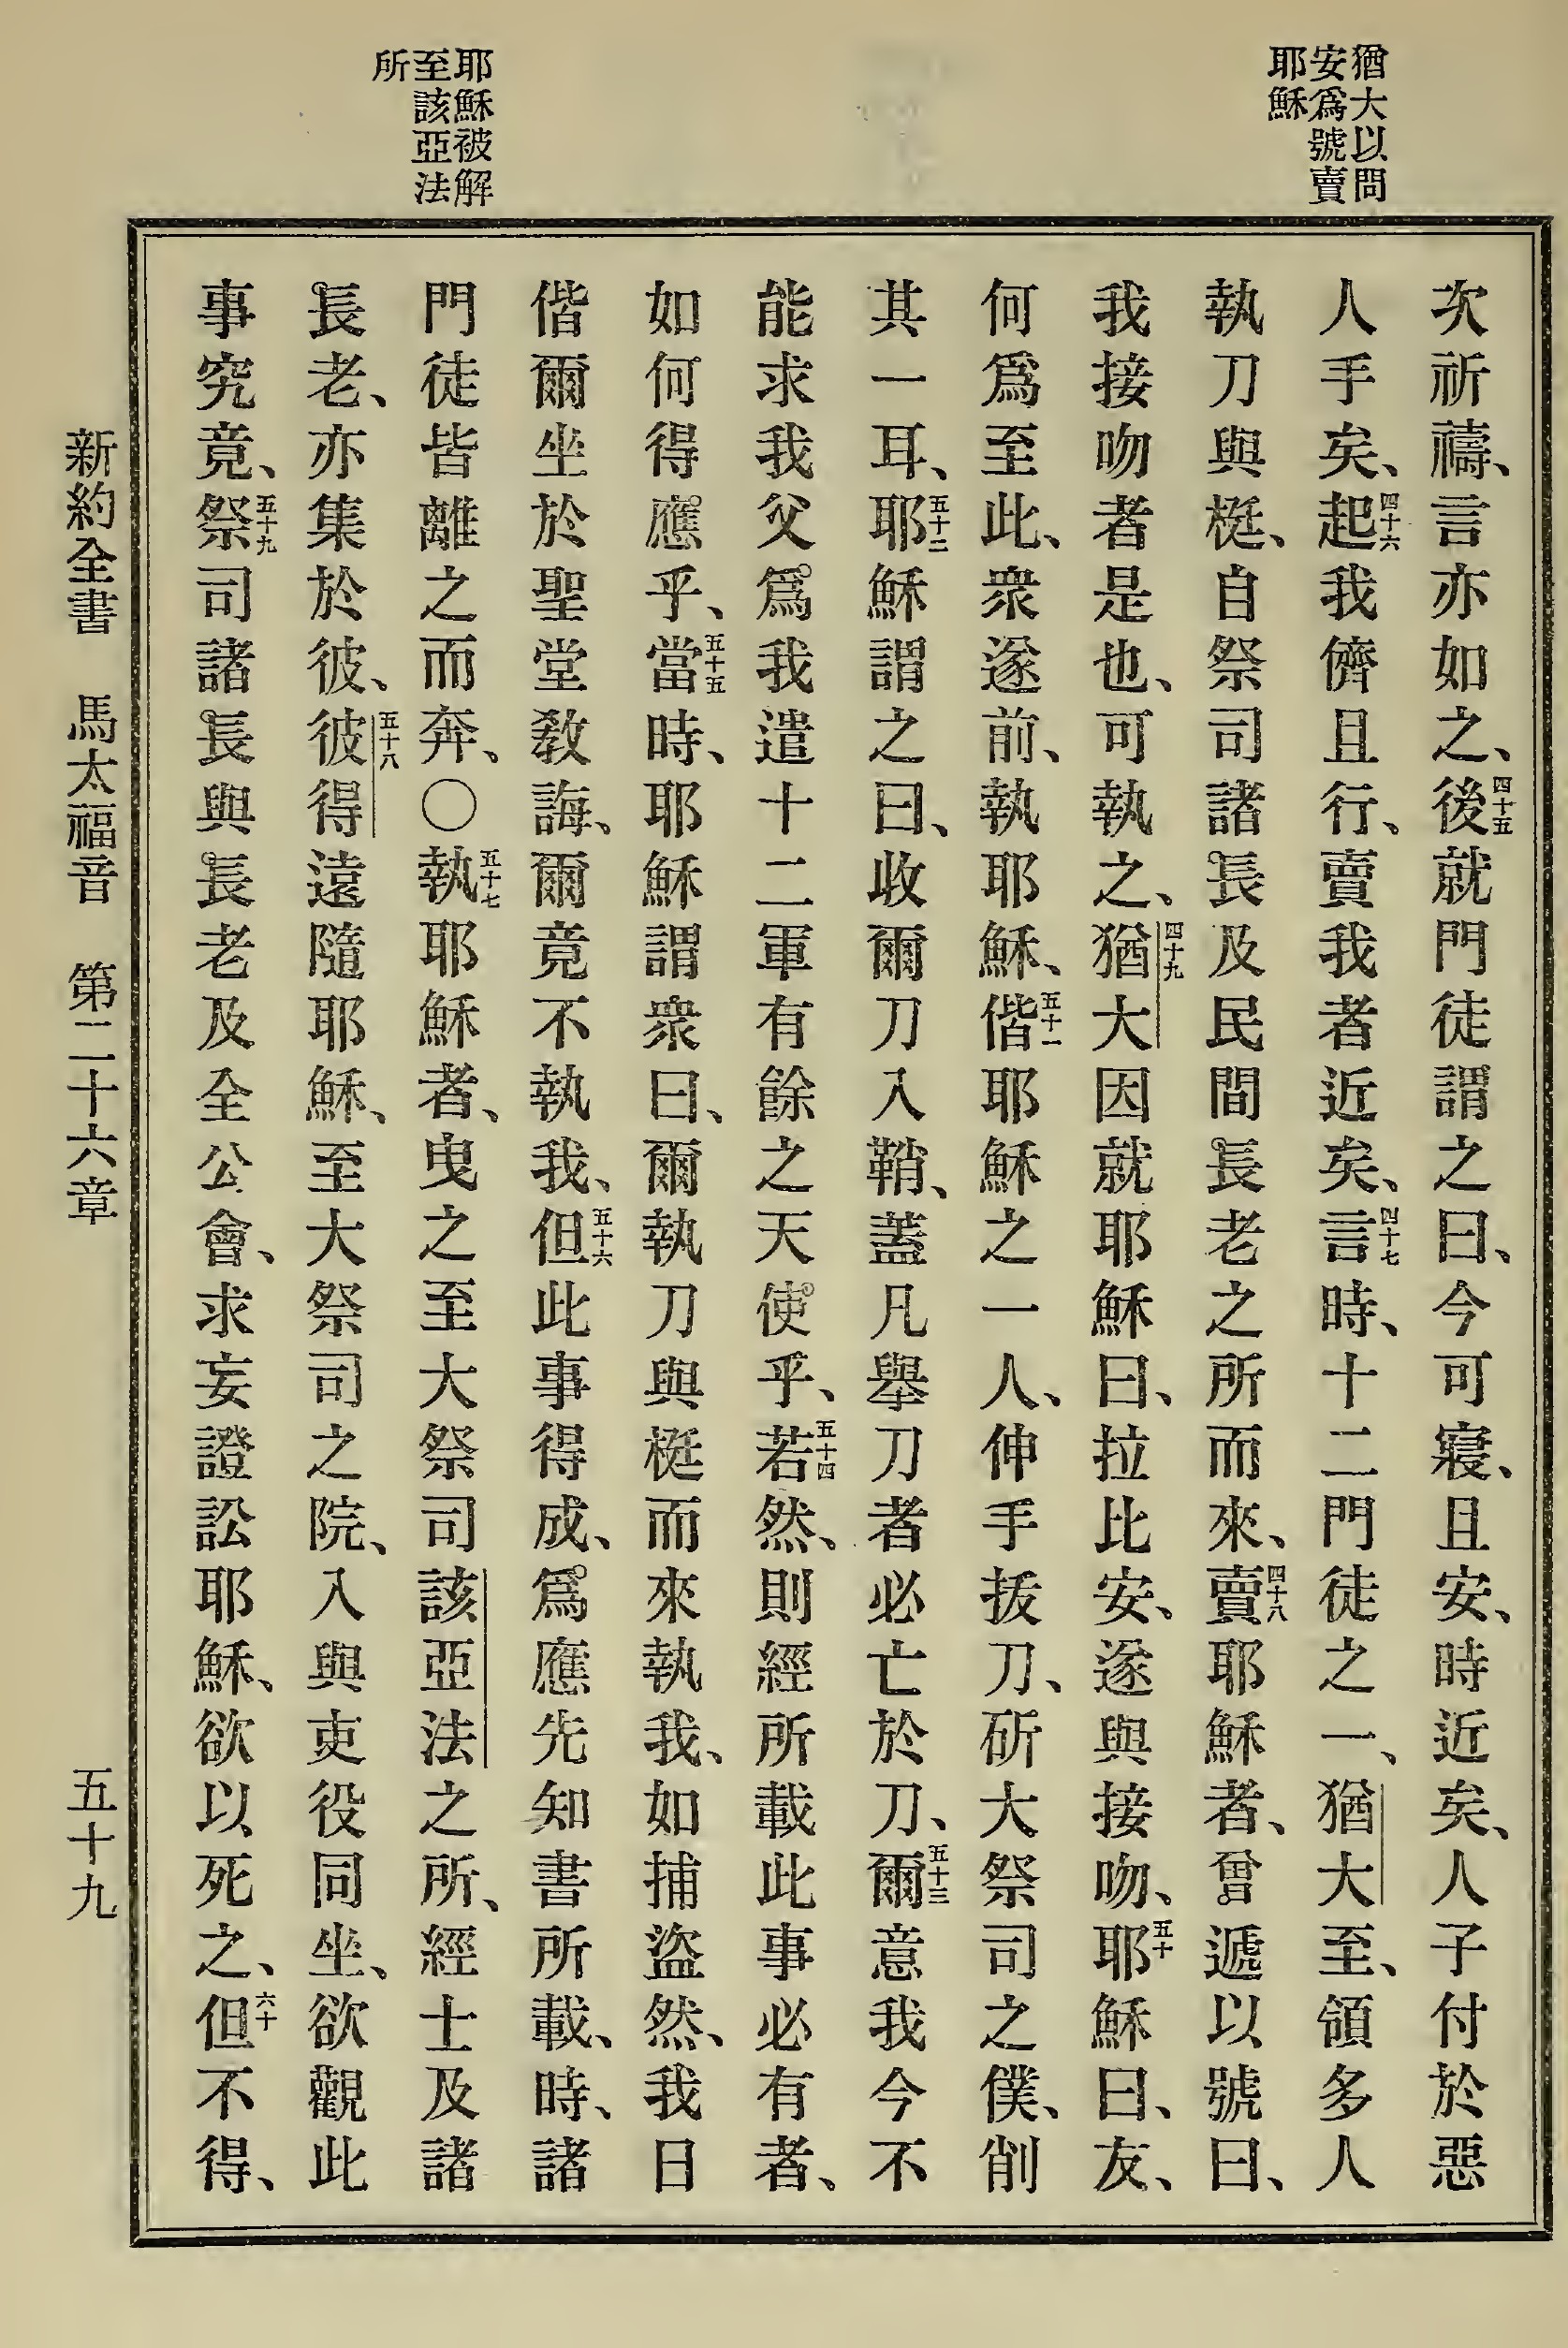 猶大以問
安爲號賣
耶穌
耶穌被解
至該亞法
所
次祈禱、言亦如之、四十五後就門徒謂之曰、今可寢、且安、時近矣、人子付於惡
人手矣、四十六起我儕且行、賣我者近矣、四十七言時、十二門徒之一、猶大至、領多人
執刀與梃、自祭司諸長及民間長老之所而來、四十八賣耶穌者、曾遞以號曰、
我接吻者是也、可執之、四十九猶大因就耶穌曰、拉比安、遂與接吻、五十耶穌曰、友、
何爲至此、衆遂前、執耶穌、五十一偕耶穌之一人、伸手拔刀、斫大祭司之僕、削
其一耳、五十二耶穌謂之曰、收爾刀入鞘、蓋凡舉刀者必亡於刀、五十三爾意我今不
能求我父爲我遣十二軍有餘之天使乎、五十四若然、則經所載此事必有者、
如何得應乎、五十五當時、耶穌謂衆曰、爾執刀與梃而來執我、如捕盜然、我日
偕爾坐於聖堂敎誨、爾竟不執我、五十六但此事得成、爲應先知書所載、時、諸
門徒皆離之而奔、〇五十七執耶穌者、曳之至大祭司該亞法之所、經士及諸
長老、亦集於彼、五十八彼得遠隨耶穌、至大祭司之院、入與吏役同坐、欲觀此
事究竟、五十九祭司諸長與長老及全公會、求妄證訟耶穌、欲以死之、六十但不得、
新約全書 馬太福音 第二十六章 五十九